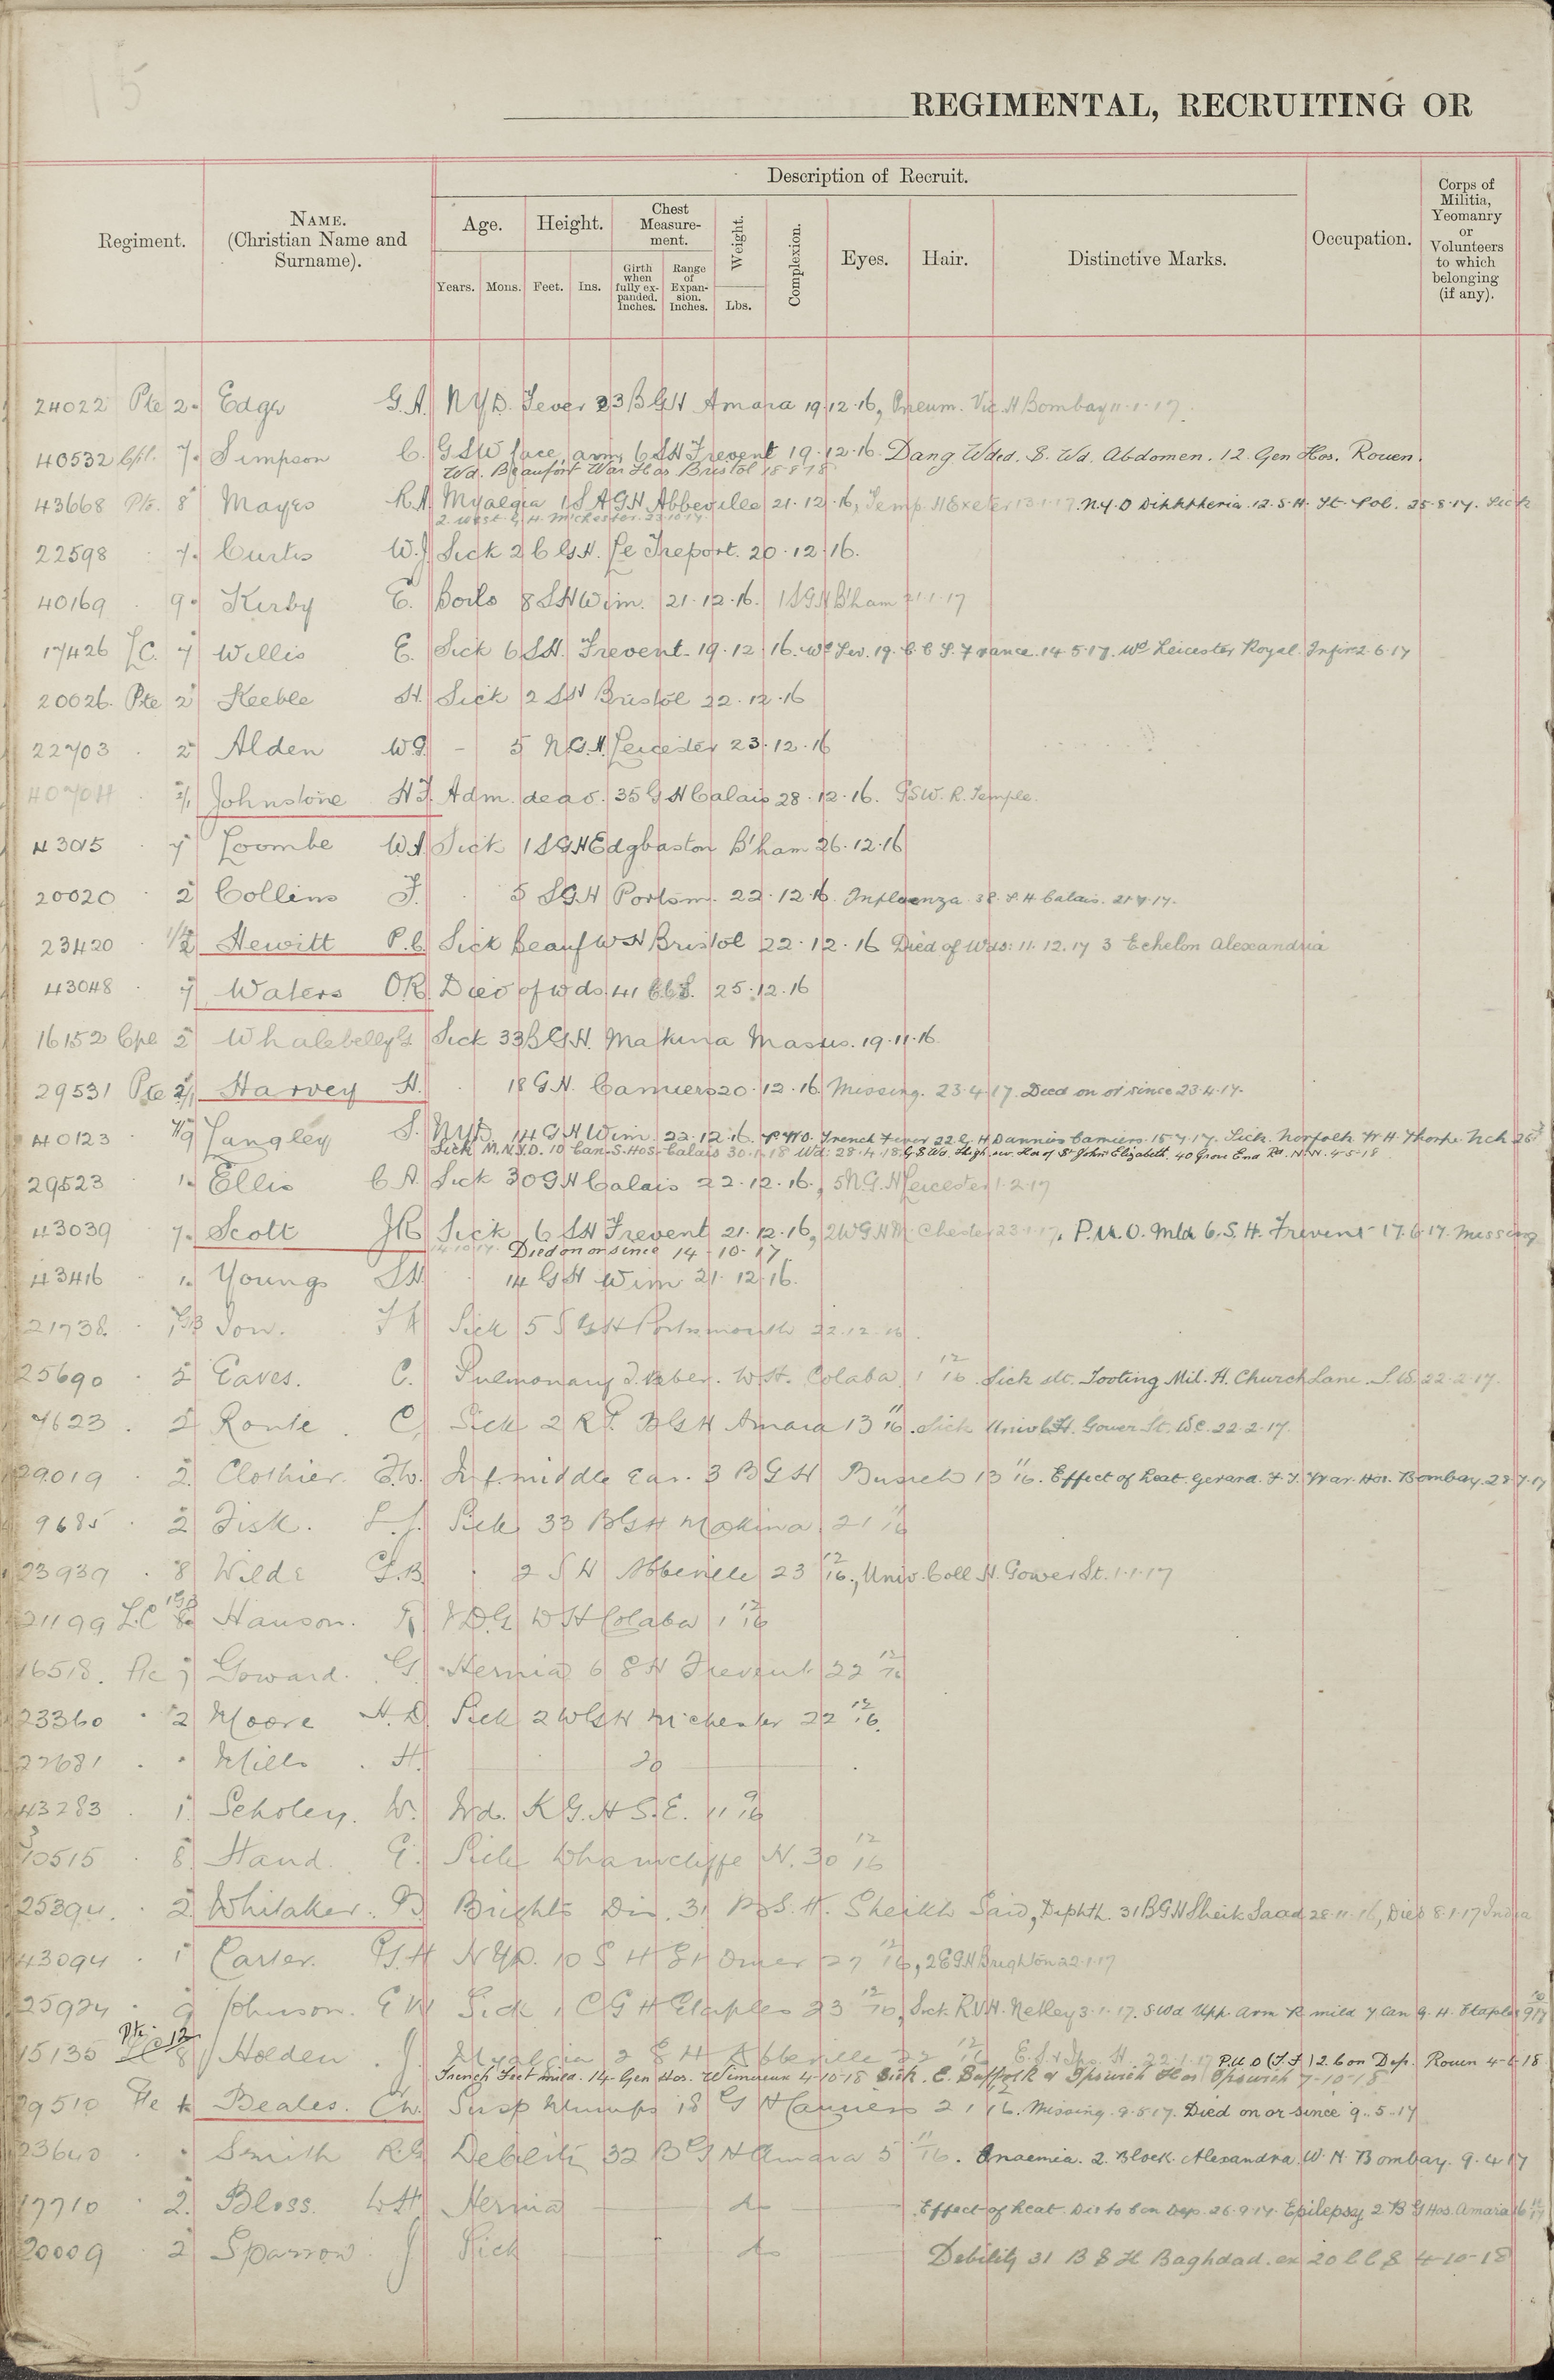 REGIMENTAL, RECRUITING OR
Regiment.
NAME.
(Christian Name and
Surname).
Description of Recruit.
Age.
Height.
Chest
Measure-
ment.
Weight.
Complexion.
Eyes.
Hair.
Distinctive Marks.
Occupation.
Corps of
Militia,
Yeomanry
or
Volunteers
to which
belonging
(if any).
Years.
Mons.
Feet.
Ins.
Girth
when
fully ex-
panded.
Inches.
Range
of
Expan-
sion.
Inches.
Lbs.
24022 Pte 2. Edge G.A. NYD. Fever 23 BGH Amara 19.12.16, Pneum. Vic. H Bombay 11.1.17.
40532 Cpl. 7. Simpson C. GSW face, arm, 6 SH Frevent 19.12.16. Dang. Wded. S. Wd. Abdomen. 12. Gen Hos. Rouen.
Wd. Beaufort War Hos Bristol 18-8-18
43668 Pte. 8 Mayes R.A. Myalgia 1 S A GH Abbeville 21.12.16, Temp. H Exeter 13.1.17. N.Y.D Diphtheria. 12. S.H. St Pol. 25.8.17. Sick
2. West. G.H. M'chester. 23.10.17.
22598 7. Curtis W.J. Sick 2 C GH. Le Treport. 20.12.16.
40169 9. Kirby E. Boils 8 SH Wim. 21.12.16. 1 SGH B'ham 21.1.17
17426 LC. 7 Willis E. Sick 6 SH. Frevent. 19.12.16. Wd Sev. 19. C C S. France. 14.5.17. Wd Leicester Royal Infir. 2.6.17
20026. Pte 2 Keeble H. Sick 2 SH Bristol 22.12.16
22703 2 Alden W.G. - 5 N.G.H. Leicester 23.12.16
40704 2/1 Johnstone H.F. Adm. dead. 35 GH Calais 28.12.16. GSW. R. Temple.
43015 7 Loombe W.A. Sick 1 SGH Edgbaston B'ham 26.12.16
20020 2 Collins F. 5 SGH Portsm. 22.12.16. Influenza 38. S.H Calais. 21.7.17.
23420 1/2 Hewitt P.C. Sick Beauf W H Bristol 22.12.16 Died of Wds: 11.12.17 3 Echelon Alexandria
43048 7 Waters O.R. Died of wds. 41 C.C.S. 25.12.16
16152 Cpl 2 Whalebelly G Sick 33 BGH. Makina Masus. 19.11.16.
29531 Pte 2/1 Harvey H. 18 G.H. Camiers 20.12.16. Missing. 23.4.17. Died on or since 23.4.17.
40123 7/9 Langley S. NYD. 14 GH Wim. 22.12.16. P.U.O. Trench Fever 22 G.H Dannies Camiers. 15.7.17. Sick. Norfolk W.H. Thorpe. Nch
Sick M.N.Y.D. 10 Can. S. Hos. Calais 30.1.18 Wd: 28.4.18. G S Wd. Thigh sev. Hos of St John Elizabeth. 40 Grove End Rd. N.W. 4-5-18
29523 1. Ellis C A. Sick 30 GH Calais 22.12.16., 5 N.G.H Leicester 1.2.17
43039 7. Scott J.R Sick 6 SH Frevent 21.12.16, 2WGH M'Chester 23.1.17. P.U.O. Mld 6. S.H. Frevent 17.6.17. Missing
14.10.17. Died on or since 14-10-17
43416 1. Youngs S.H. 14 GH Wim 21.12.16.
21738. Tow. Sick 5 S GH Portsmouth 22.12.16.
25690 2 Eaves. C. Pulmonary Tuber. W.H. Colaba 1 12/16. Sick slt. Tooting Mil. H. Church Lane. S.W. 22.2.17.
7623 2 Route C. Sick 2 R.F. BGH Amara 13 11/16. Sick Univ C.H. Gower St. WC. 22.2.17.
29019 2. Clothier. F.W. Inf. middle Ear. 3 BGH Busreh 13 11/16. Effect of heat. Gerard. F.T. War. Hos. Bombay. 28.7.17
9685 2 Fisk. L.J. Sick 33 BGH Makina 21 11/16
23939 8 Wilde G.B. 2 S H Abbeville 23 12/16., Univ. Coll H. Gower St. 1.1.17
21199 L.C Hanson. VDG WH Colaba 1 12/16
16518. Pte 7 Goward. G. Hernia 6 SH Frevent 22 12/16
23360 2 Moore H.D. Sick 2 WGH M'chester 22 12/16.
22681 Mills H. 20
43283 1 Scholey. W. Wd. K G.H S.E. 11 9/16
8 Hand. G. Sick Wharncliffe H. 30 12/16
25394. 2 Whitaker. B Brights Dis. 31 B.S.H. Sheikh Said, Diphth. 31 BGH Sheik Saad 28.11.16, Died 8.1.17 India
43094 1 Carter. G.H NYD. 10 S H St Omer 27 12/16, 2EGH Brighton 22.1.17
25924 9 Johnson. E W Sick 1 C G H Etaples 23 12/16, Sick R.V.H. Netley 3.1.17. S Wd Upp. Arm R mild 7 Can G. H. Etaples
15135 Pte. 8 Holden. J. Myalgia 2 S H Abbeville 22 12/16 P.U.O (T.F) 2. Con Dep. Rouen 4-6-18
Trench Feet mild. 14. Gen Hos. Wimereux 4-10-18 Sick. E. Suffolk & Ipswich Hos Ipswich 7-10-18
29510 Pte Beales. C.W. Susp Mumps 18 G H Camiers 21 12/16. Missing. 9.5.17. Died on or since 9.5.17
23640 Smith R.G Debility 32 BGH Amara 5 11/16. Anaemia. 2. Block. Alexandra. W. H. Bombay. 9.4.17
17710 2. Bloss. W.H Hernia do Effect of heat. Dis to Con Dep. 26.9.17. Epilepsy 2 B G Hos. Amara
20009 2 Sparrow J Sick do Debility 31 B S H Baghdad. ex 20 C C S 4-10-18